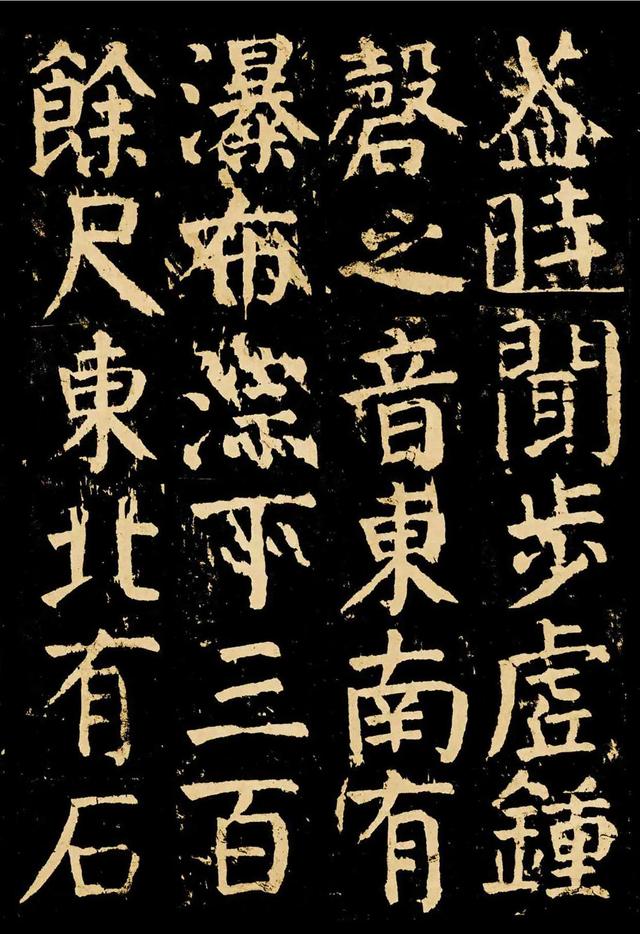 蓋時聞步虛鍾
磬之音東南有
瀑布淙下三百
餘尺東北有石